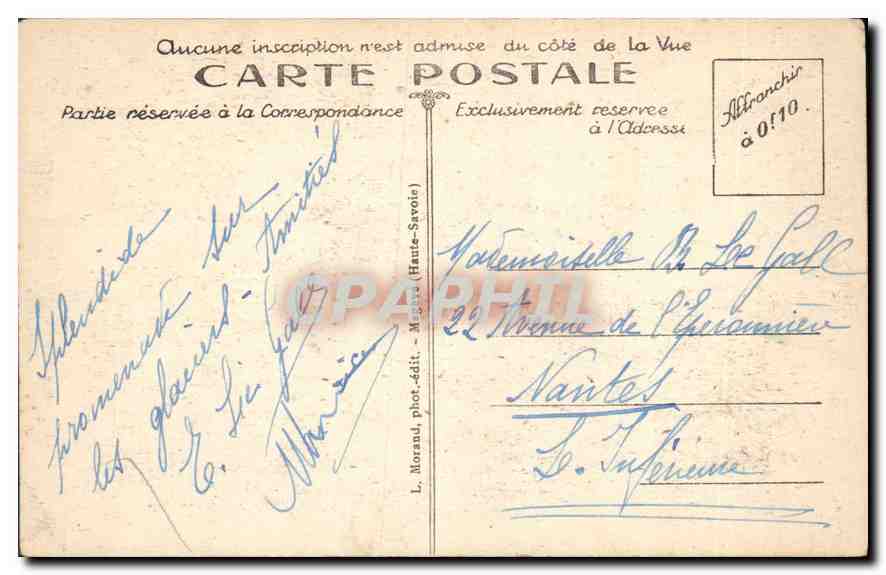 Aucune inscription n'est admise du côté de la Vue
CARTE POSTALE
Partie réservée à la Correspondance
Exclusivement reservee
à l'Adresse
Affranchir
à 0f10.
Splendide
promenade sur
les glaciers. Amitiés
L. Morand, phot.-édit. — Megève (Haute-Savoie)
Mademoiselle Le Gall
22 Avenue de l'Eperonnière
Nantes
L. Inférieure
CPAPHIL